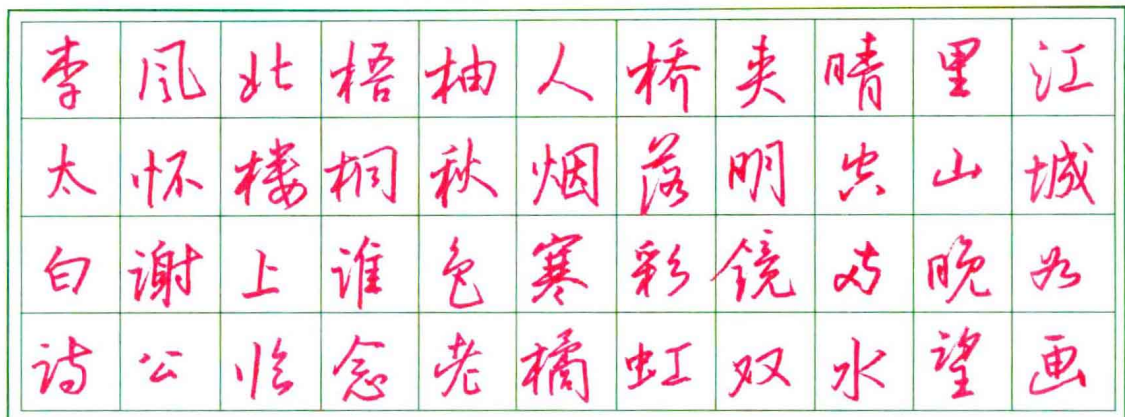 江城如画
里山晚望
晴空两水
夹明镜双
桥落彩虹
人烟寒橘
柚秋色老
梧桐谁念
北楼上临
风怀谢公
李太白诗